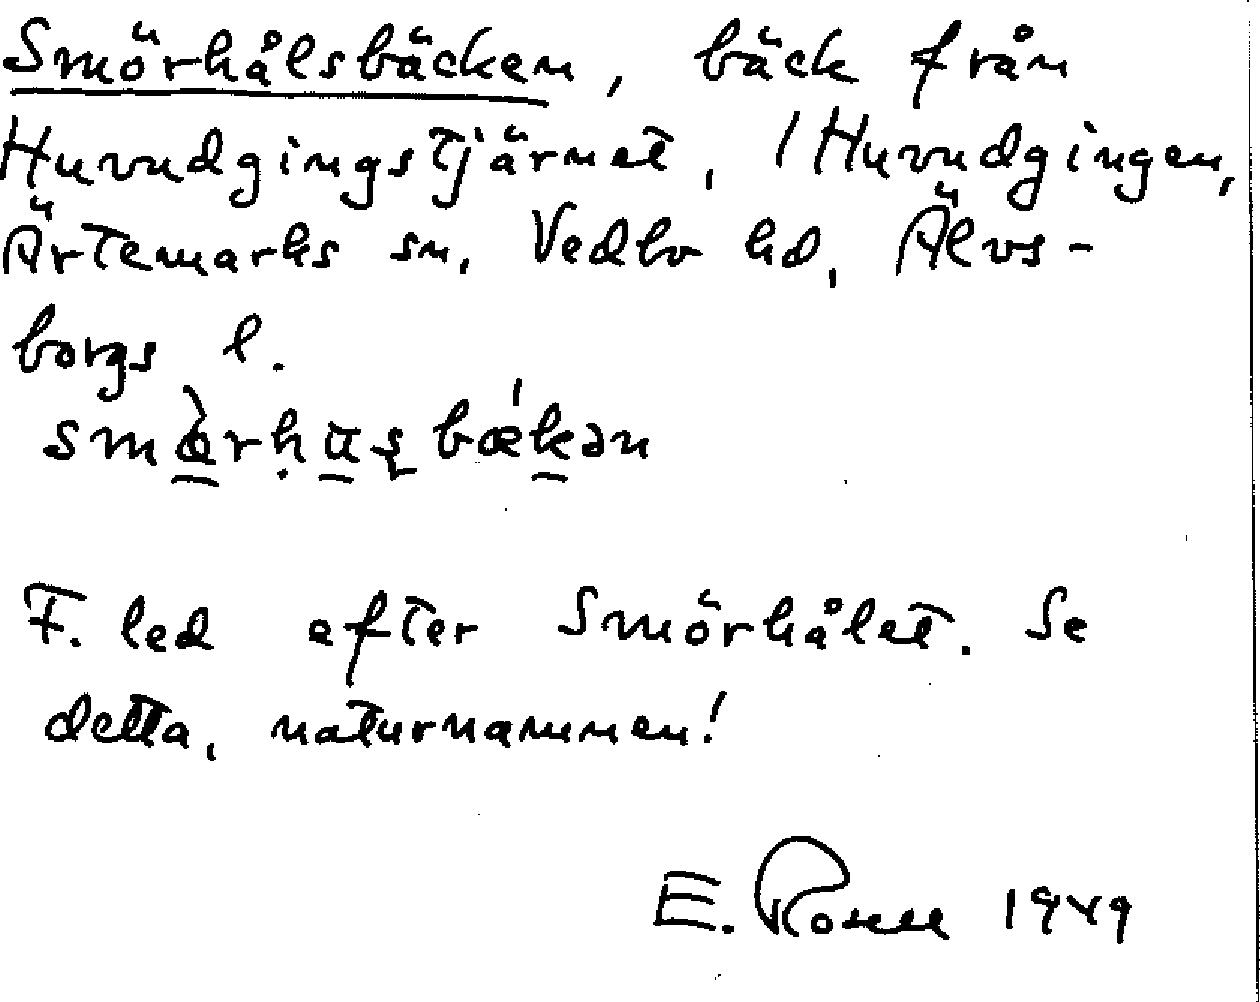 Smörhålsbäcken, bäck från
Huvudgingstjärnet, / Huvudgingen,
Ärtemarks sn, Vedbo hd, Älvs-
borgs l.
smö̀rhu̱ʂbǽkən
F. led efter Smörhålet. Se
detta, naturnamnen!
E. 1949